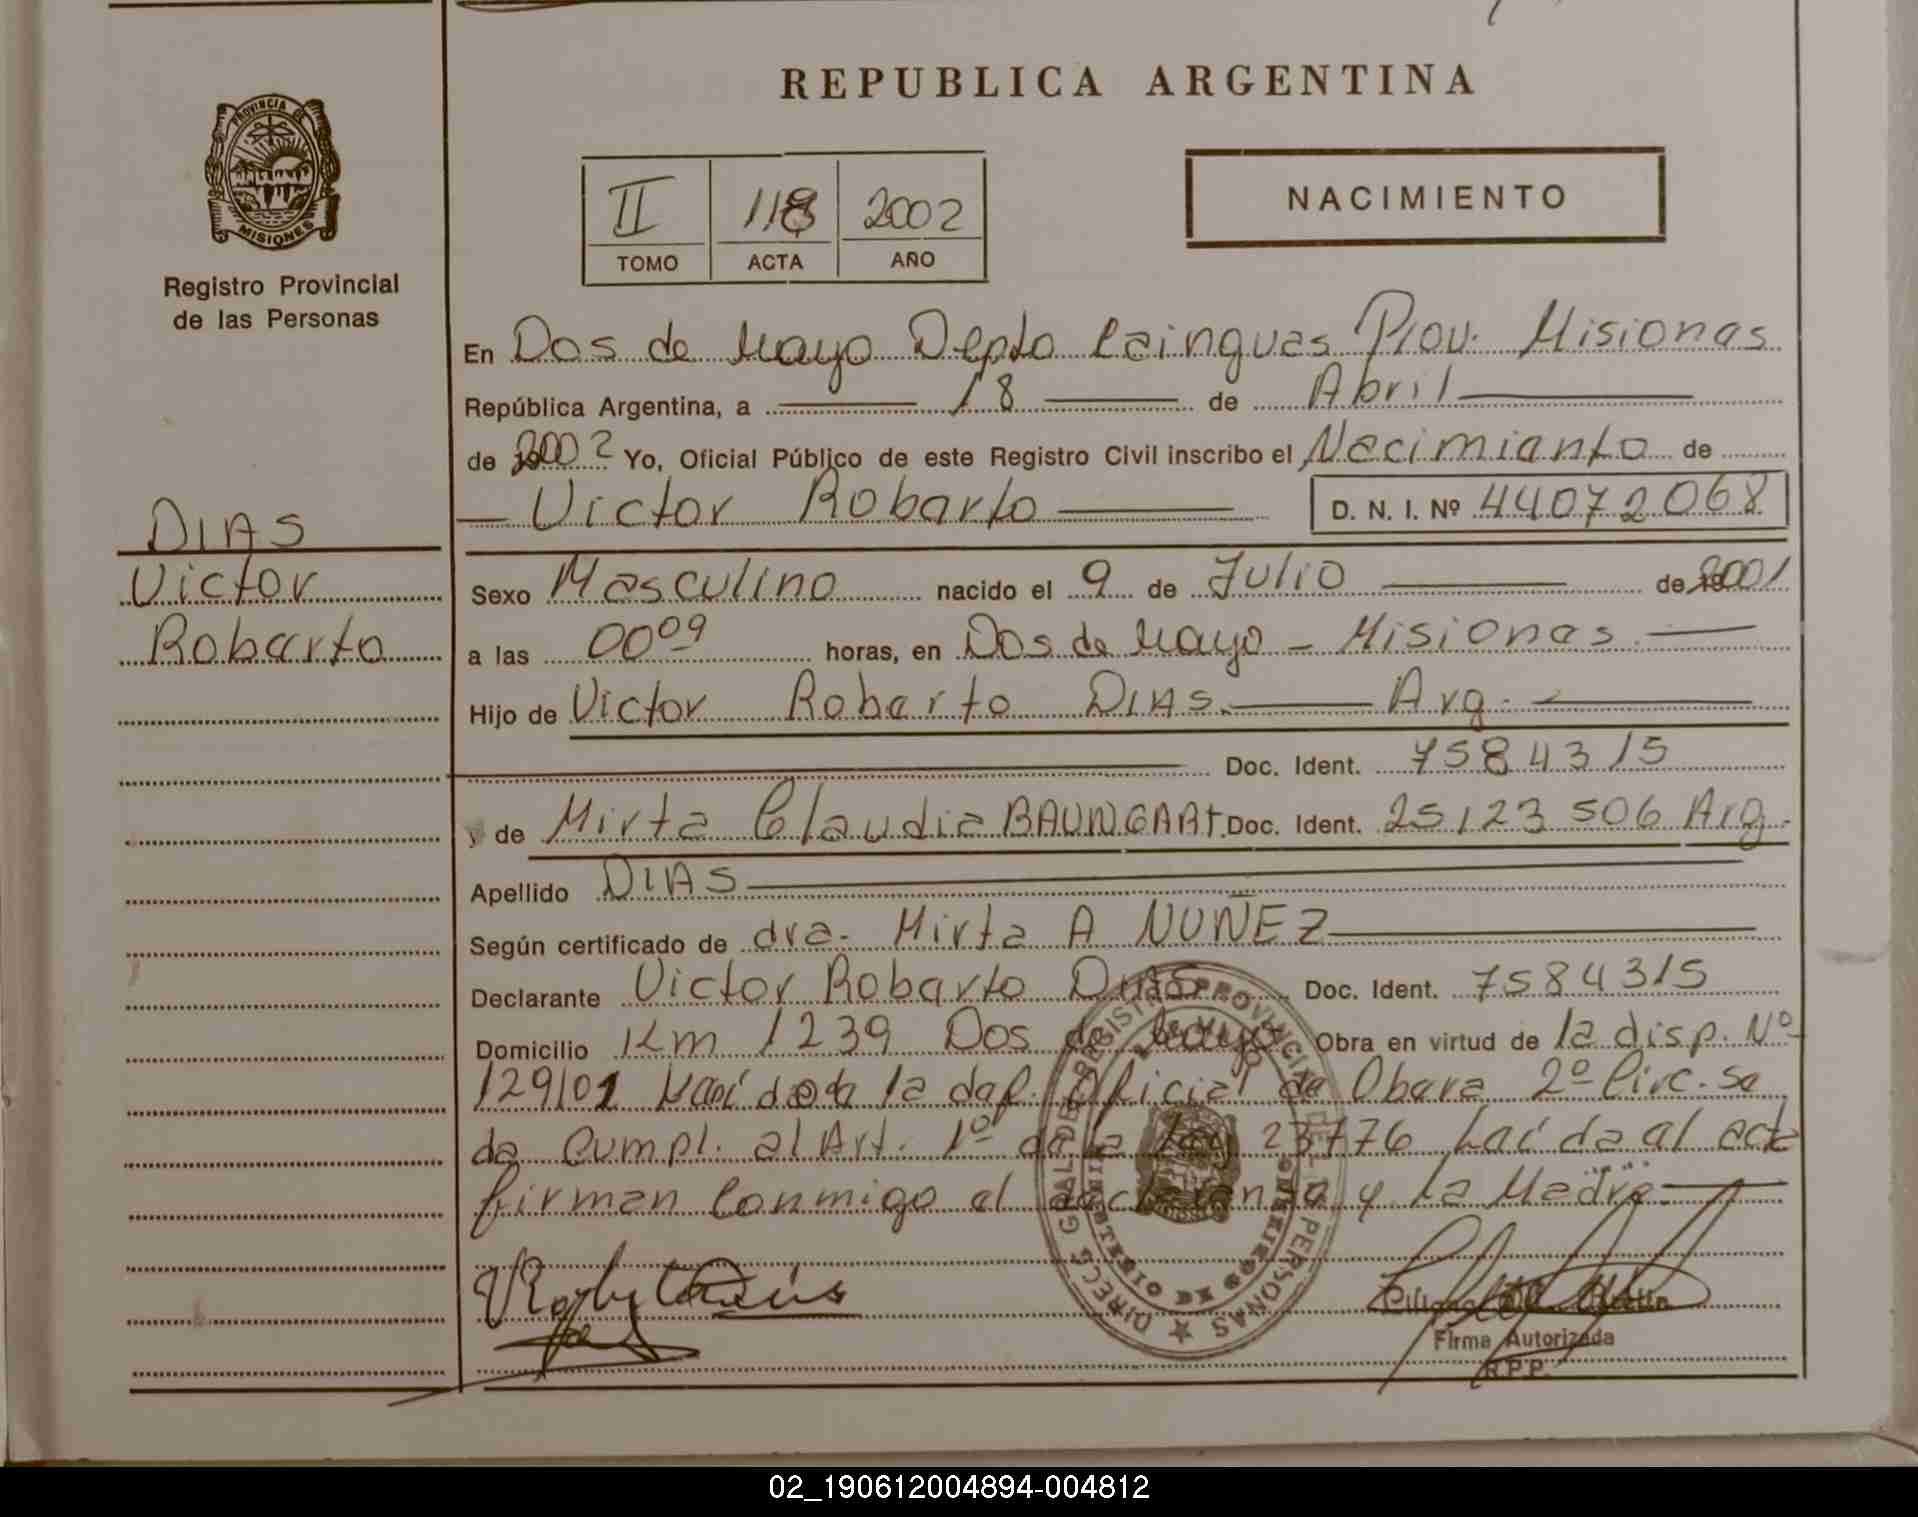 REPUBLICA ARGENTINA
PROVINCIA DE
MISIONES
Registro Provincial
de las Personas
II 118 2002
TOMO ACTA AÑO
NACIMIENTO
En Dos de Mayo Depto Cainguas Prov. Misiones
República Argentina, a 18 de Abril
de 2002 Yo, Oficial Público de este Registro Civil inscribo el Nacimiento de
Victor Roberto D. N. I. Nº 44072068
DIAS
Victor
Roberto
Sexo Masculino nacido el 9 de Julio de 2001
a las 00 09 horas, en Dos de Mayo - Misiones
Hijo de Victor Roberto DIAS. Arg.
Doc. Ident. 7584315
y de Mirta Claudia BAUNGART. Doc. Ident. 25123506 Arg.
Apellido DIAS
Según certificado de dra. Mirta A NUÑEZ
Declarante Victor Roberto DIAS Doc. Ident. 7584315
Domicilio Km 1239 Dos de Mayo Obra en virtud de la disp. Nº
129/01 de la del. Oficial de Obera 2º Circ. Se
da cumpl. al Art. 1º de la Ley 23776 Leída al acta
firman conmigo el declarante y la Madre.
DIREC. GRAL DEL REGISTRO PROVINCIAL DE LAS PERSONAS
MINISTERIO DE GOBIERNO
Firma Autorizada
R.P.P.
02_190612004894-004812